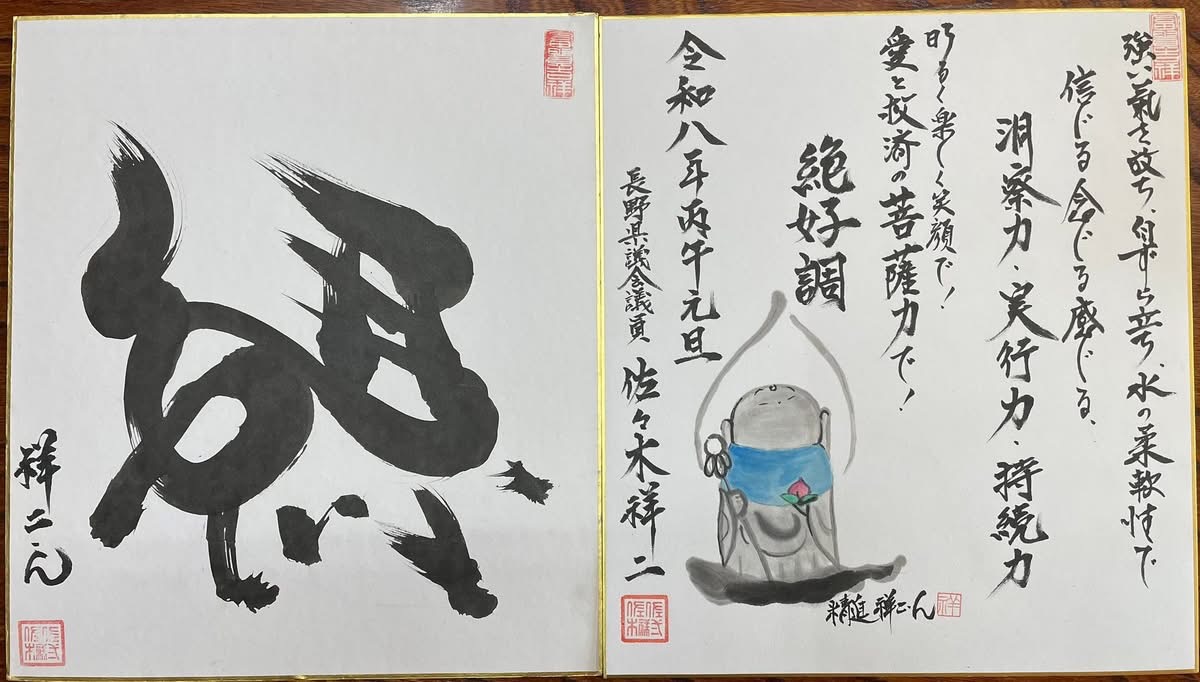 強い氣を放ち、自ら立ち、水の柔軟性で
信じる念じる感じる、
洞察力・実行力・持続力
明るく楽しく笑顔で！
愛と救済の菩薩力で！
絶好調
令和八年丙午元旦
長野県議会議員 佐々木祥二
精進 祥二ん
祥二ん